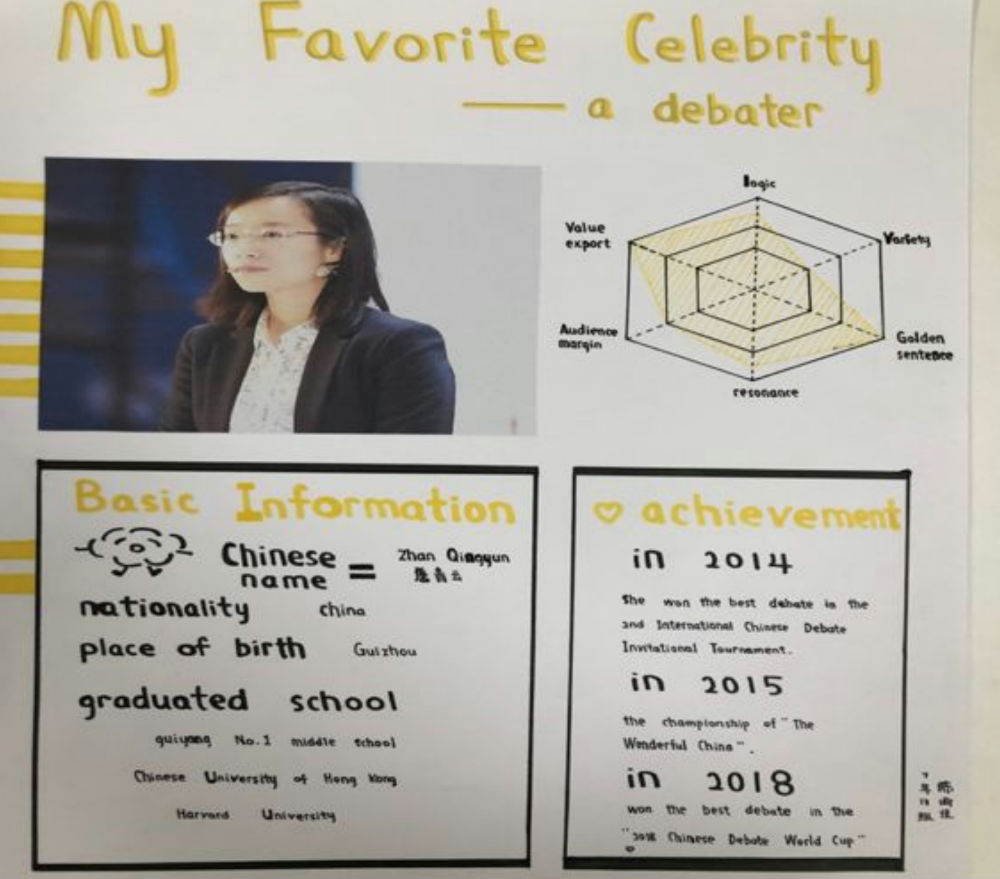 My Favorite Celebrity
—— a debater
logic
Value
export
Variety
Audience
margin
Golden
sentence
resonance
Basic Information
Chinese
name = Zhan Qingyun
詹青云
nationality china
place of birth Guizhou
graduated school
guiyang No.1 middle school
Chinese University of Hong Kong
Harvard University
♡ achievement
in 2014
She won the best debate in the
2nd International Chinese Debate
Invitational Tournament.
in 2015
the championship of "The
Wonderful China".
in 2018
won the best debate in the
"2018 Chinese Debate World Cup"